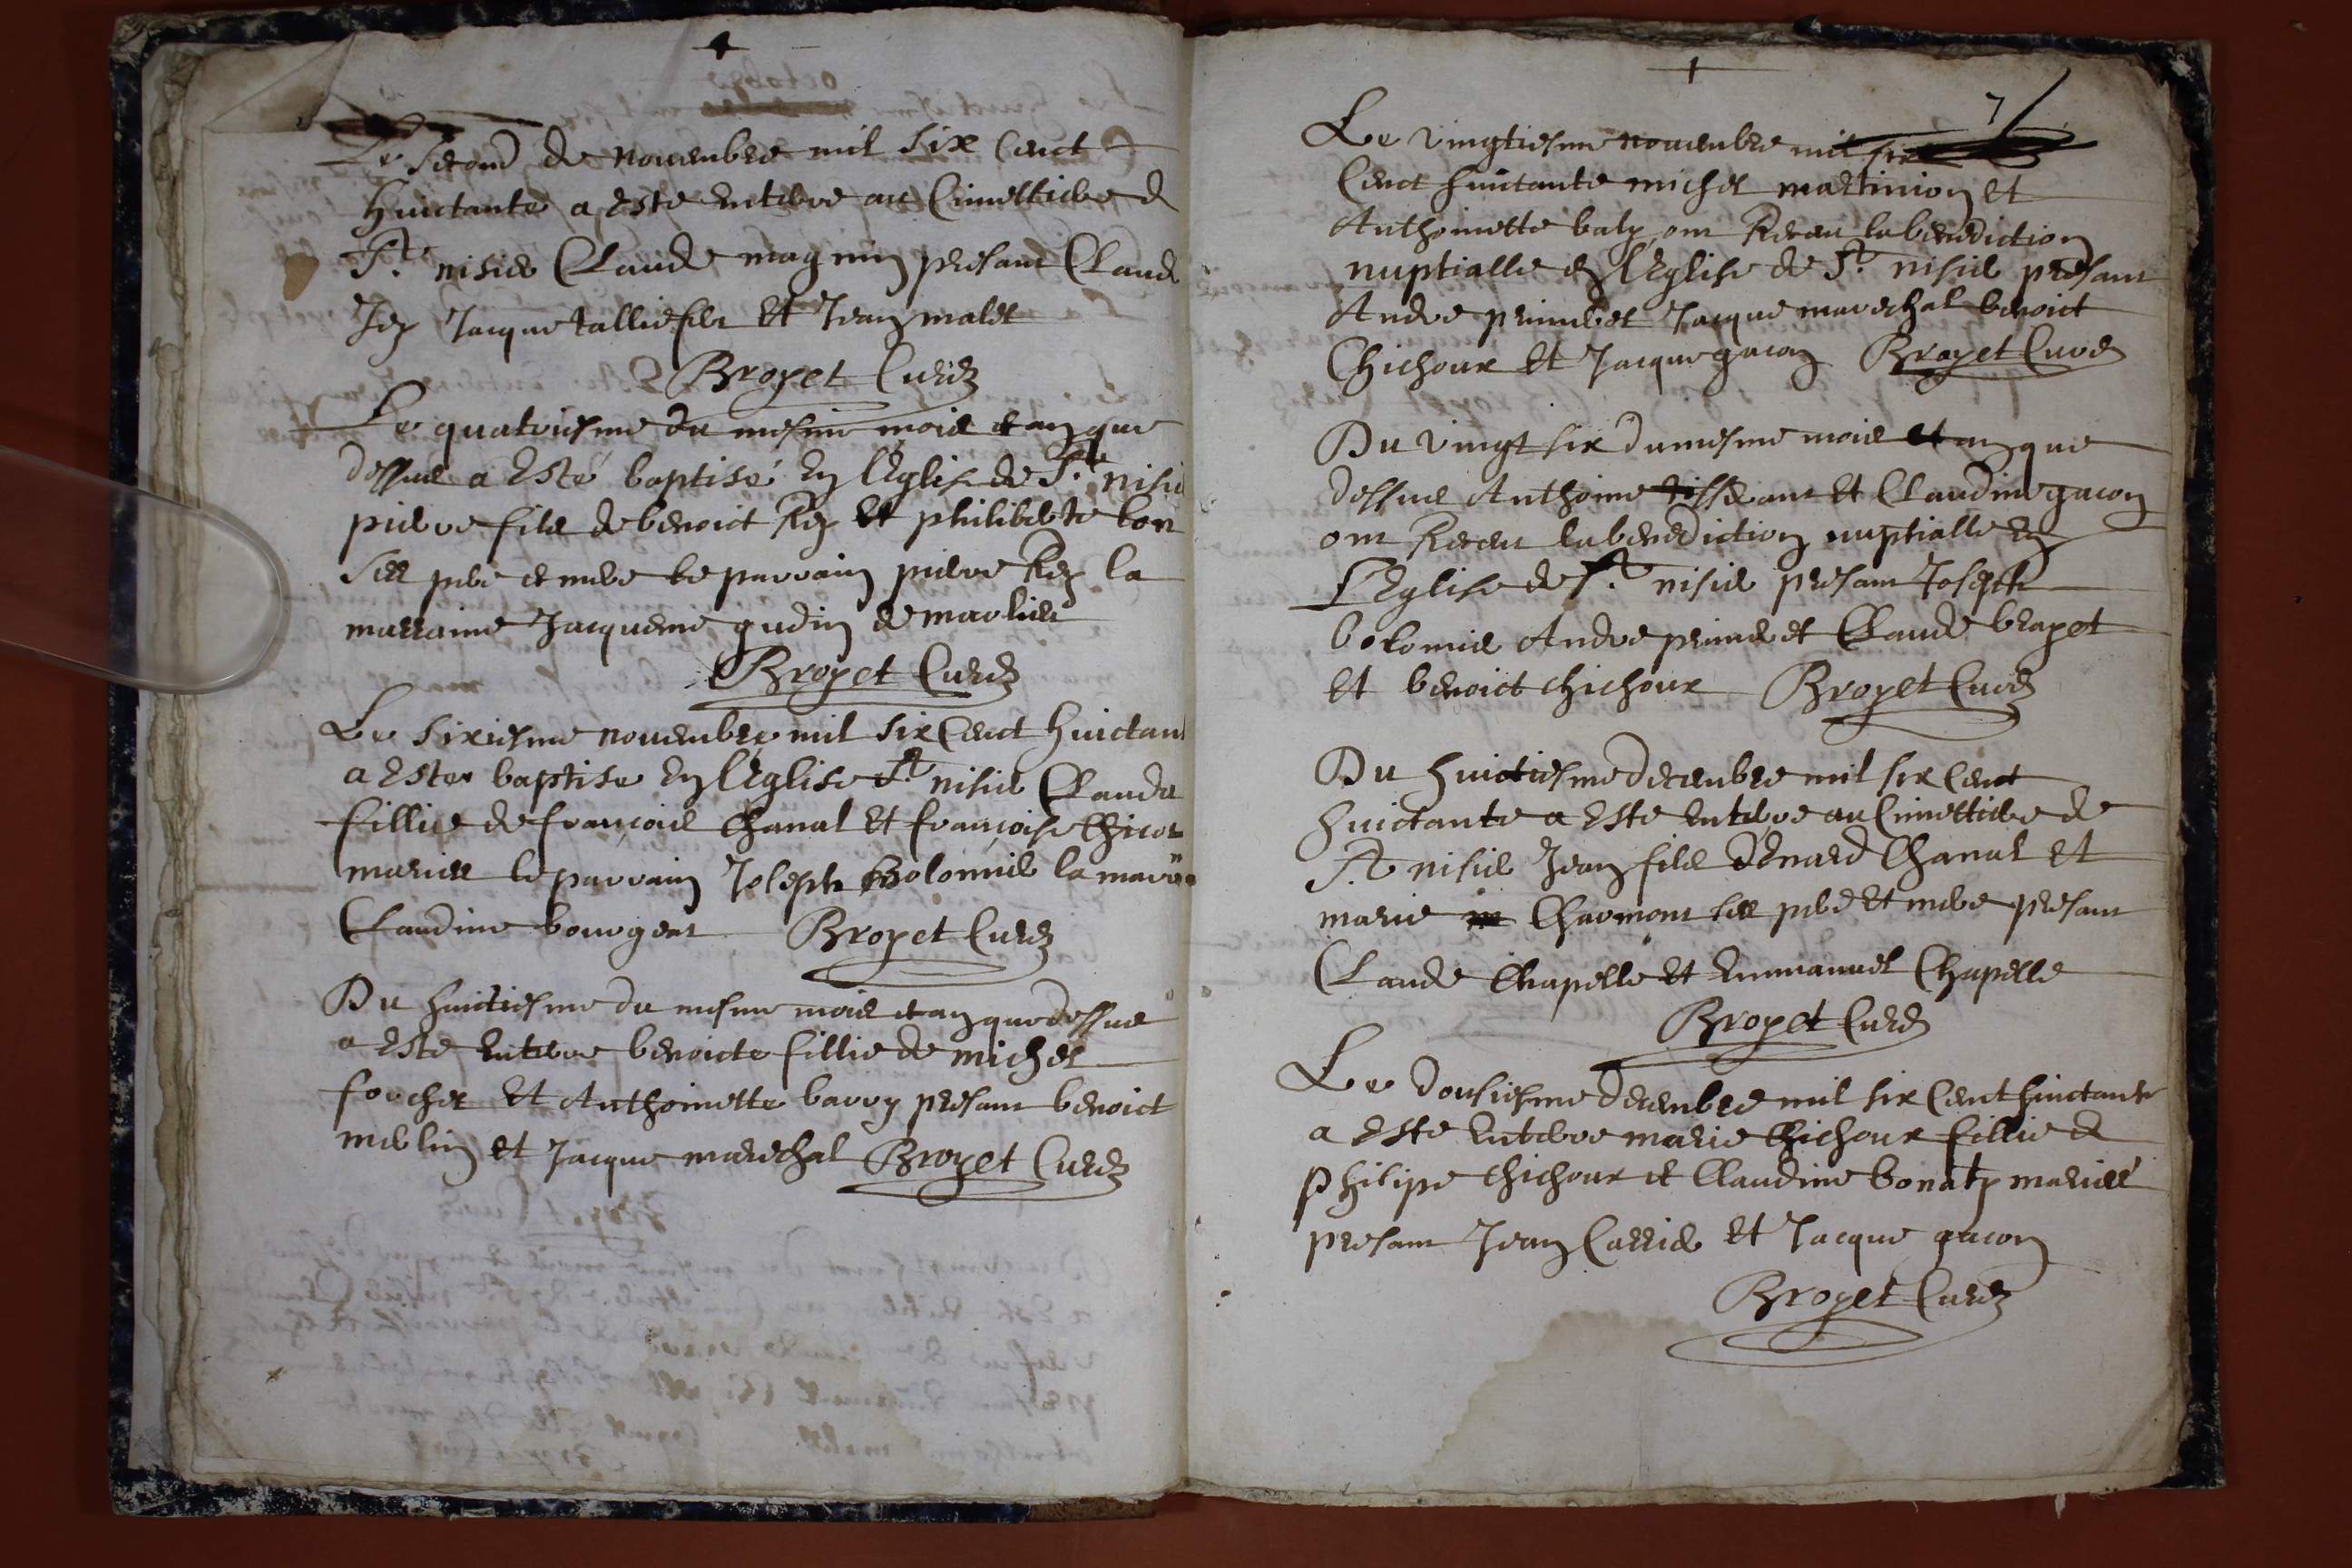 Le second de novembre mil six Cent
huictante a este Entere au Cimettiere de
St nisier Claude magnin presant Claude
Jacque tallie filz Et Jean malet
Broyet Curez
Le quatriesme du mesme mois et an que
dessus a Esté baptisé En lEglise de St nisie
pierre filz de benoict Rey Et philiberte bon
ses pere et mere le parrain pierre Rey la
marraine Jacqueme gudin de marlier
Broyet Curez
Le sixiesme novembre mil six Cent huictan
a Ester baptise En lEglise St nisier Clauda
fillie de francois Chanal Et francoise Chicot
maries le parrain Joseph Bolomier la marr
Claudine bourgeat Broyet Curez
Du huictiesme du mesme mois et an que dessus
a Este Entere benoicte fillie de michel
forchet Et Anthoinette barry presant benoict
merlin et Jacque marechal Broyet Curez
7
Le vingtiesme novembre mil six
Cent huictante michel martinion et
Anthoinette baly ont Receu la benediction
nuptialle en lEglise de St nisier presant
Andre perindet Jacque marechal benoict
Chichoux Et Jacque gacon Broyet Curez
Du vingt six du mesme mois et an que
dessus Anthoine tisserant Et Claudine gacon
ont Receu la benediction nuptialle En
lEglise de St nisier presant Joseph
bolomier Andre perindet Claude brayet
Et benoict chichoux Broyet Curez
Du huictiesme decembre mil six Cent
huictante a Este Entere au Cimettiere de
St nisier Jean filz dEnard Chanal Et
marie Charmont ses pere Et mere presant
Claude Chapelle Et Emmanuel Chapelle
Broyet Curez
Le dousiesme decembre mil six Cent huictante
a Este Entere marie Chichoux fillie de
philipe Chichoux et Claudine bonaty mariés
presant Jean Carrier Et Jacque gacon
Broyet Curez